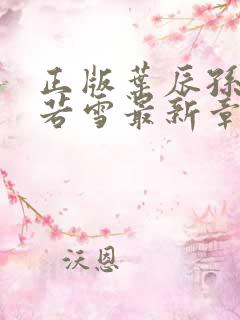 正版葉辰孫
若雪最新章
沃恩